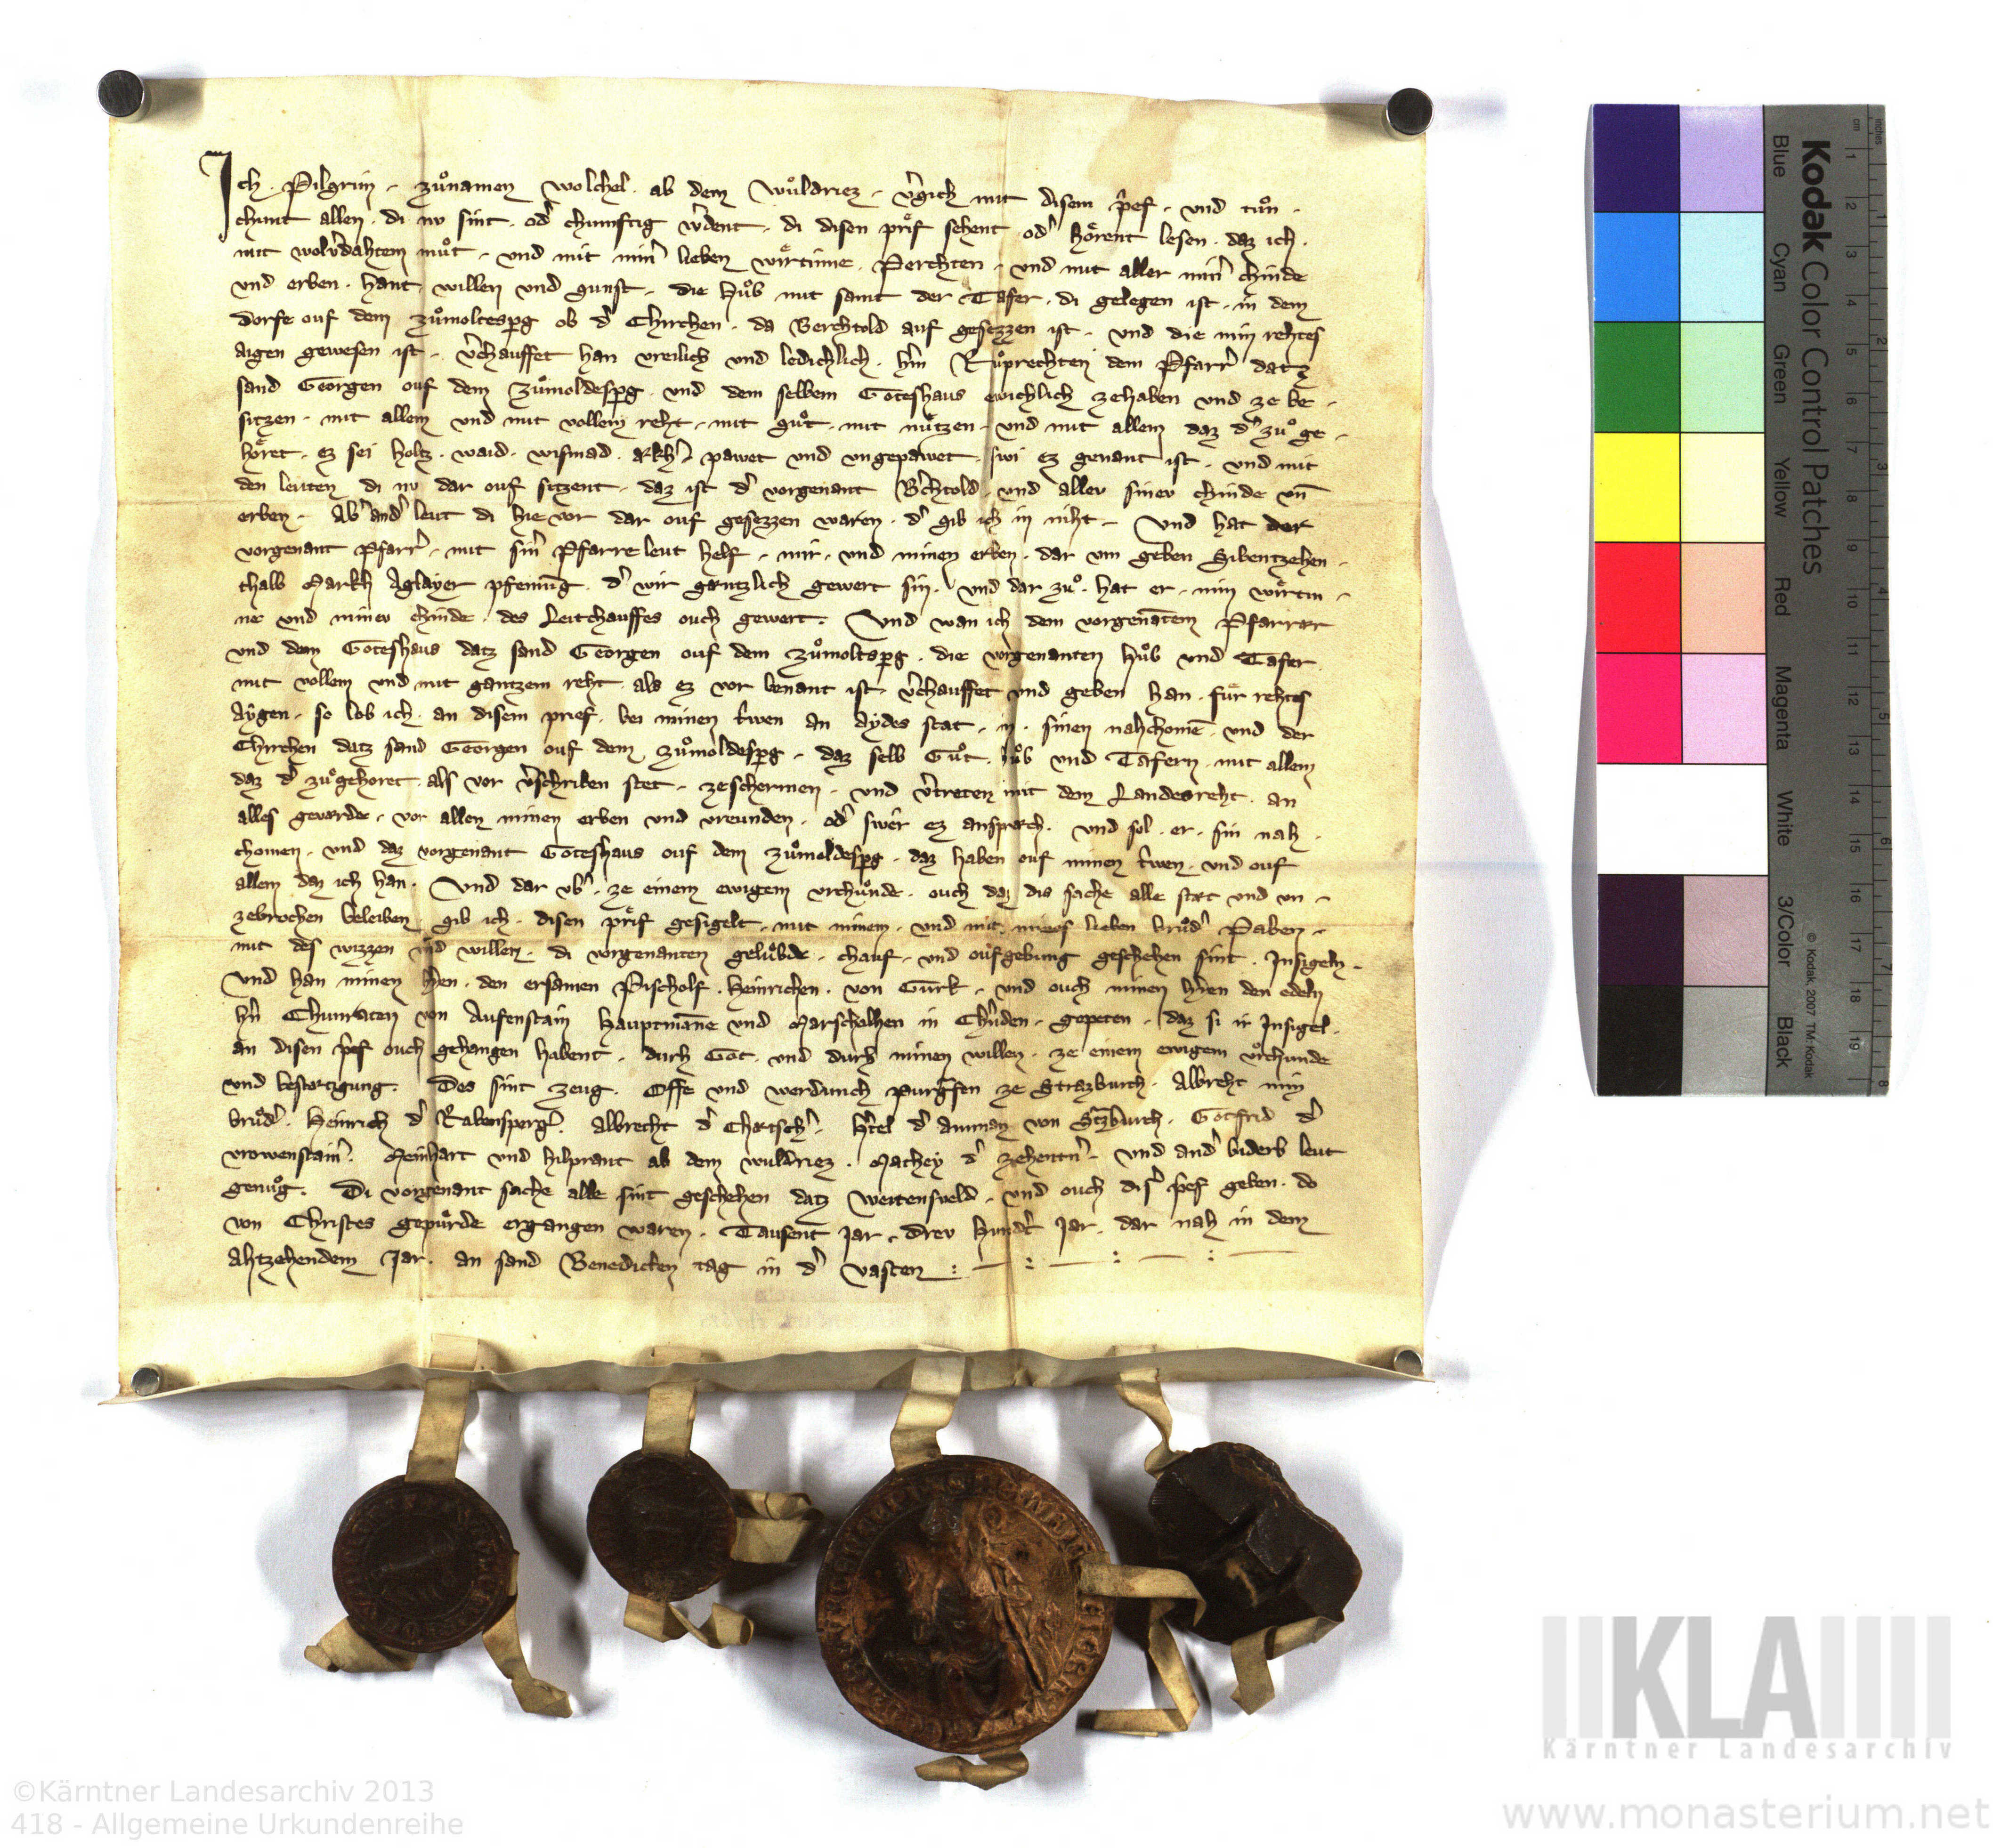 Ich . Pilgrim . zuͦnamen wolchel . ab dem wuͦldriez . v̓gich mit disem p̓ef . vnd tuͦn .
chunt allen . di nv sint . od̓ chumftig w̓dent . di disen prif sehent . od̓ hoͤrent lesen . daz ich .
mit wolv̓dahtem muͦt . vnd mit min̓ lieben wirtinne . Perchten . vnd mit aller min̓ chinde
vnd erben . hant willen vnd gunst . die Huͦb mit samt der Tafer . di gelegen ist . in dem
dorfe ouf dem zuͦmoltesp̓g ob d̓ Chirchen . da Berchtold auf gesezzen ist . vnd die min rehtes
aigen gewesen ist . v̓chauffet han vreilich vnd ledichlich . h̓rn Ruͦprechten dem Pfarr̓ datz
sand Georgen ouf dem zuͦmoldesp̓g . vnd dem selbem Goteshaus ewichlich zehaben vnd ze be .
sitzen . mit allem vnd mit vollem reht . mit guͦt . mit nutzen . vnd mit allem daz d̓ zuͦ ge .
hoͤret . ez sei holtz . waid . wismad . akh̓ . pawet vnd vngepawet . swi ez genant ist . vnd mit
den leuten di nv dar ouf sitzent . daz ist d̓ vorgenant B̓chtold . vnd allev sinev chinde vn̄
erben . Ab̓ and̓ leut di hie vor dar ouf gesezzen waren . d̓ gib ich in niht . Vnd hat der
vorgenant Pfarr̓ . mit sin̓ Pfarreleut helf . mir . vnd minen erben . dar vm geben Sibentzehen .
thalb Markh Aglayer pfenning . d̓ wir gentzlich gewert sin . Vnd dar zuͦ . hat er . min wirtin .
ne vnd minev chinde . des Leitchauffes ouch gewert . Vnd wan ich dem vorgenātem Pfarrer
vnd dem Goteshaus datz sand Georgen ouf dem zuͦmoltsp̓g . die vorgenanten huͦb vnd Tafer .
mit vollem vnd mit gantzem reht als ez vor benant ist v̓chauffet vnd geben han . fuͤr rehtes
Aygen . so lob ich . an disem prief . bei minen t̓wen an Aydes stat . in . sinen nahchomē . vnd der
Chirchen datz sand Georgen ouf dem zuͦmoldesp̓g . daz selb Guͦt . huͦb vnd Tafern . mit allem
daz d̓ zuͦgehoret . als vor v̓schriben stet . zeschermen . vnd v̓treten mit dem Landesreht . an
alles geverde . vor allen minen erben vnd vreunden . od̓ swer ez ansprech . vnd sol . er . sin nah .
chomen . vnd daz vorgenant Goteshaus ouf dem zuͦmoldesp̓g . daz haben ouf minen t̓wen . vnd ouf
allem daz ich han . Vnd dar vb̓ . ze einem ewigem vrchuͤnde . ouch daz dis sache alle stet vnd vn .
zebrochen beleiben . gib ich . disen prif gesigelt . mit minem . vnd mit mines lieben bruͦd̓ Paben .
mit des wizzen vnd willen . di vorgenanten geluͤbde . chauf . vnd oufgebung geschehen sint . Insigeln .
Vnd han minen h̓ren . den ersamen Pischolf . Heinrichen . von Gurk . vnd ouch minen h̓ren den edeln
h̓n Chunraten von Aufenstain Hauptmanne vnd Marschalhen in Ch̓nden . gepeten . daz si ir Insigel .
an disen p̓ef ouch gehangen habent . durh Got . vnd durh minen willen . ze einem ewigem vrchunde
vnd bestetigung . Des sint zeug . Offe vnd werdunch purg̓fen ze Strazburch . Albreht min
bruͦd̓ . Heinrich d̓ Rabensperg̓ . Albrecht d̓ Chetsch̓ . H̓tel d̓ amman von St̓zburch . Gotfrid d̓
vrowenstain̓ . Meinhart vnd hilprant ab dem wuldriez . Mathey d̓ zehentn̓ . vnd and̓ biderb leut
genuͦg . Di vorgenant sache alle sint geschehen datz weitensveld . vnd ouch dis̓ p̓ef geben . do
von Christes gepuͤrde ergangen waren . Tausent Jar . drev hund̓t Jar . dar nah in dem
Ahtzehendem Jar . an sand Benedicten tag in d̓ vasten
Kodak Color Control Patches
© Kodak, 2007 TM: Kodak
Blue Cyan Green Yellow Red Magenta White 3/Color Black
cm 1 2 3 4 5 6 7 8 9 10 11 12 13 14 15 16 17 18 19
inches 1 2 3 4 5 6 7 8
KLA
Kärntner Landesarchiv
©Kärntner Landesarchiv 2013
418 - Allgemeine Urkundenreihe
www.monasterium.net